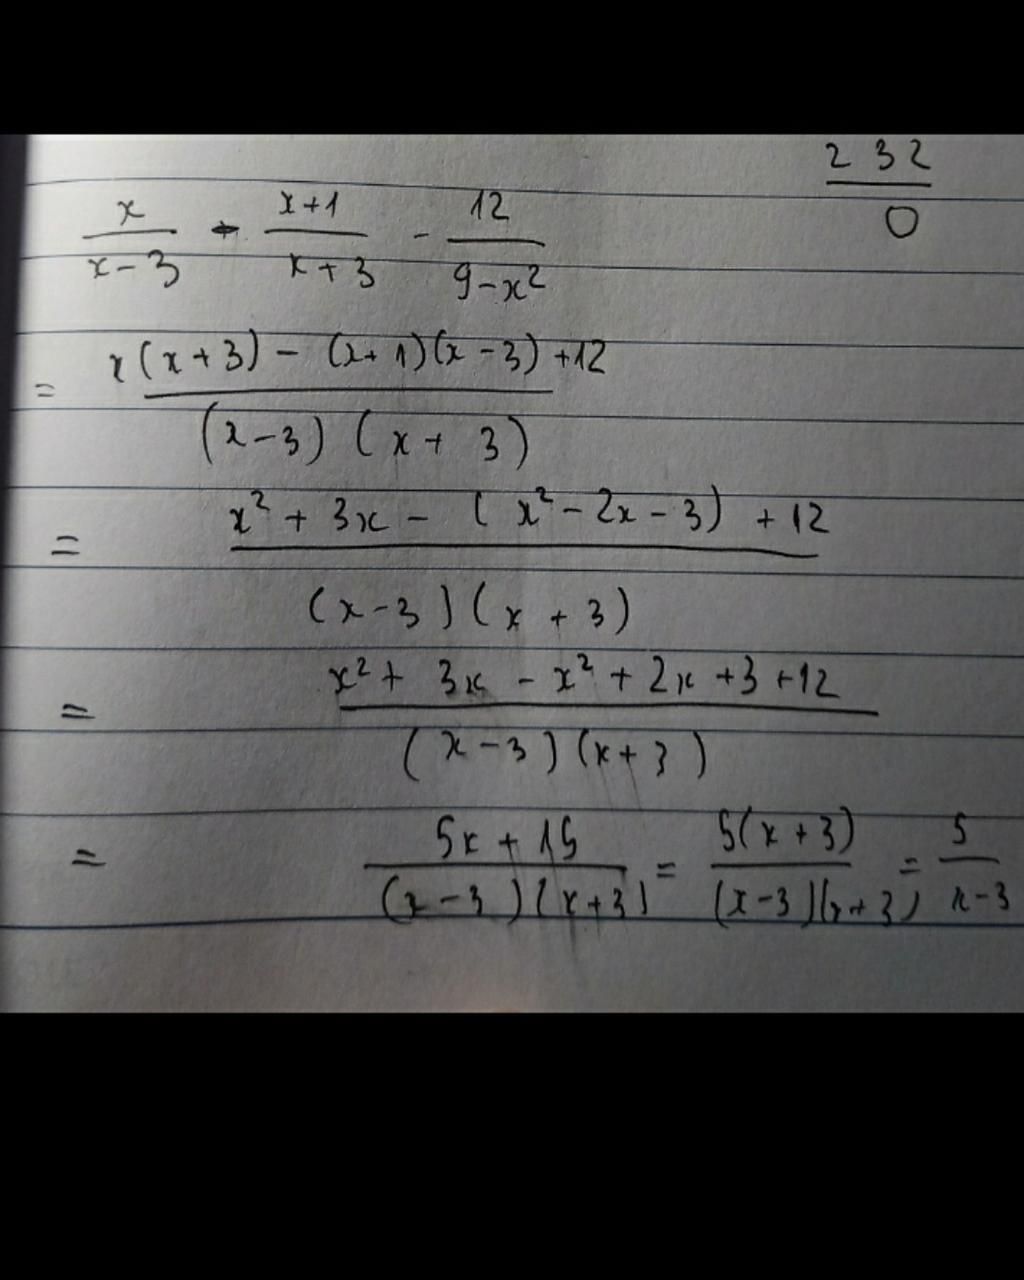 2 3 2
0
x/(x-3) - (x+1)/(x+3) - 12/(9-x²)
= (x(x+3) - (x+1)(x-3) +12)/((x-3)(x+3))
= (x² + 3x - (x² - 2x - 3) + 12)/((x-3)(x+3))
= (x² + 3x - x² + 2x + 3 + 12)/((x-3)(x+3))
= (5x + 15)/((x-3)(x+3)) = 5(x+3)/((x-3)(x+3)) = 5/(x-3)